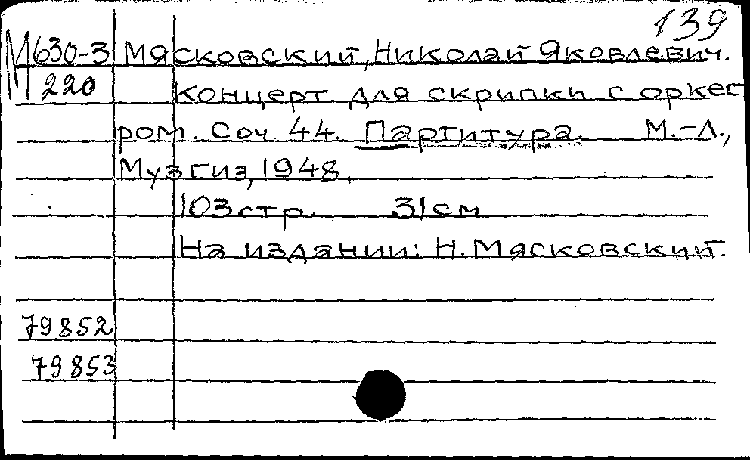 139
М630-3 Мясковский, Николай Яковлевич.
220 Концерт для скрипки с оркест
ром. Соч. 44. Партитура. М.-Л.,
Музгиз, 1948.
103 стр. 31 см
На издании: Н. Мясковский.
79852
79853